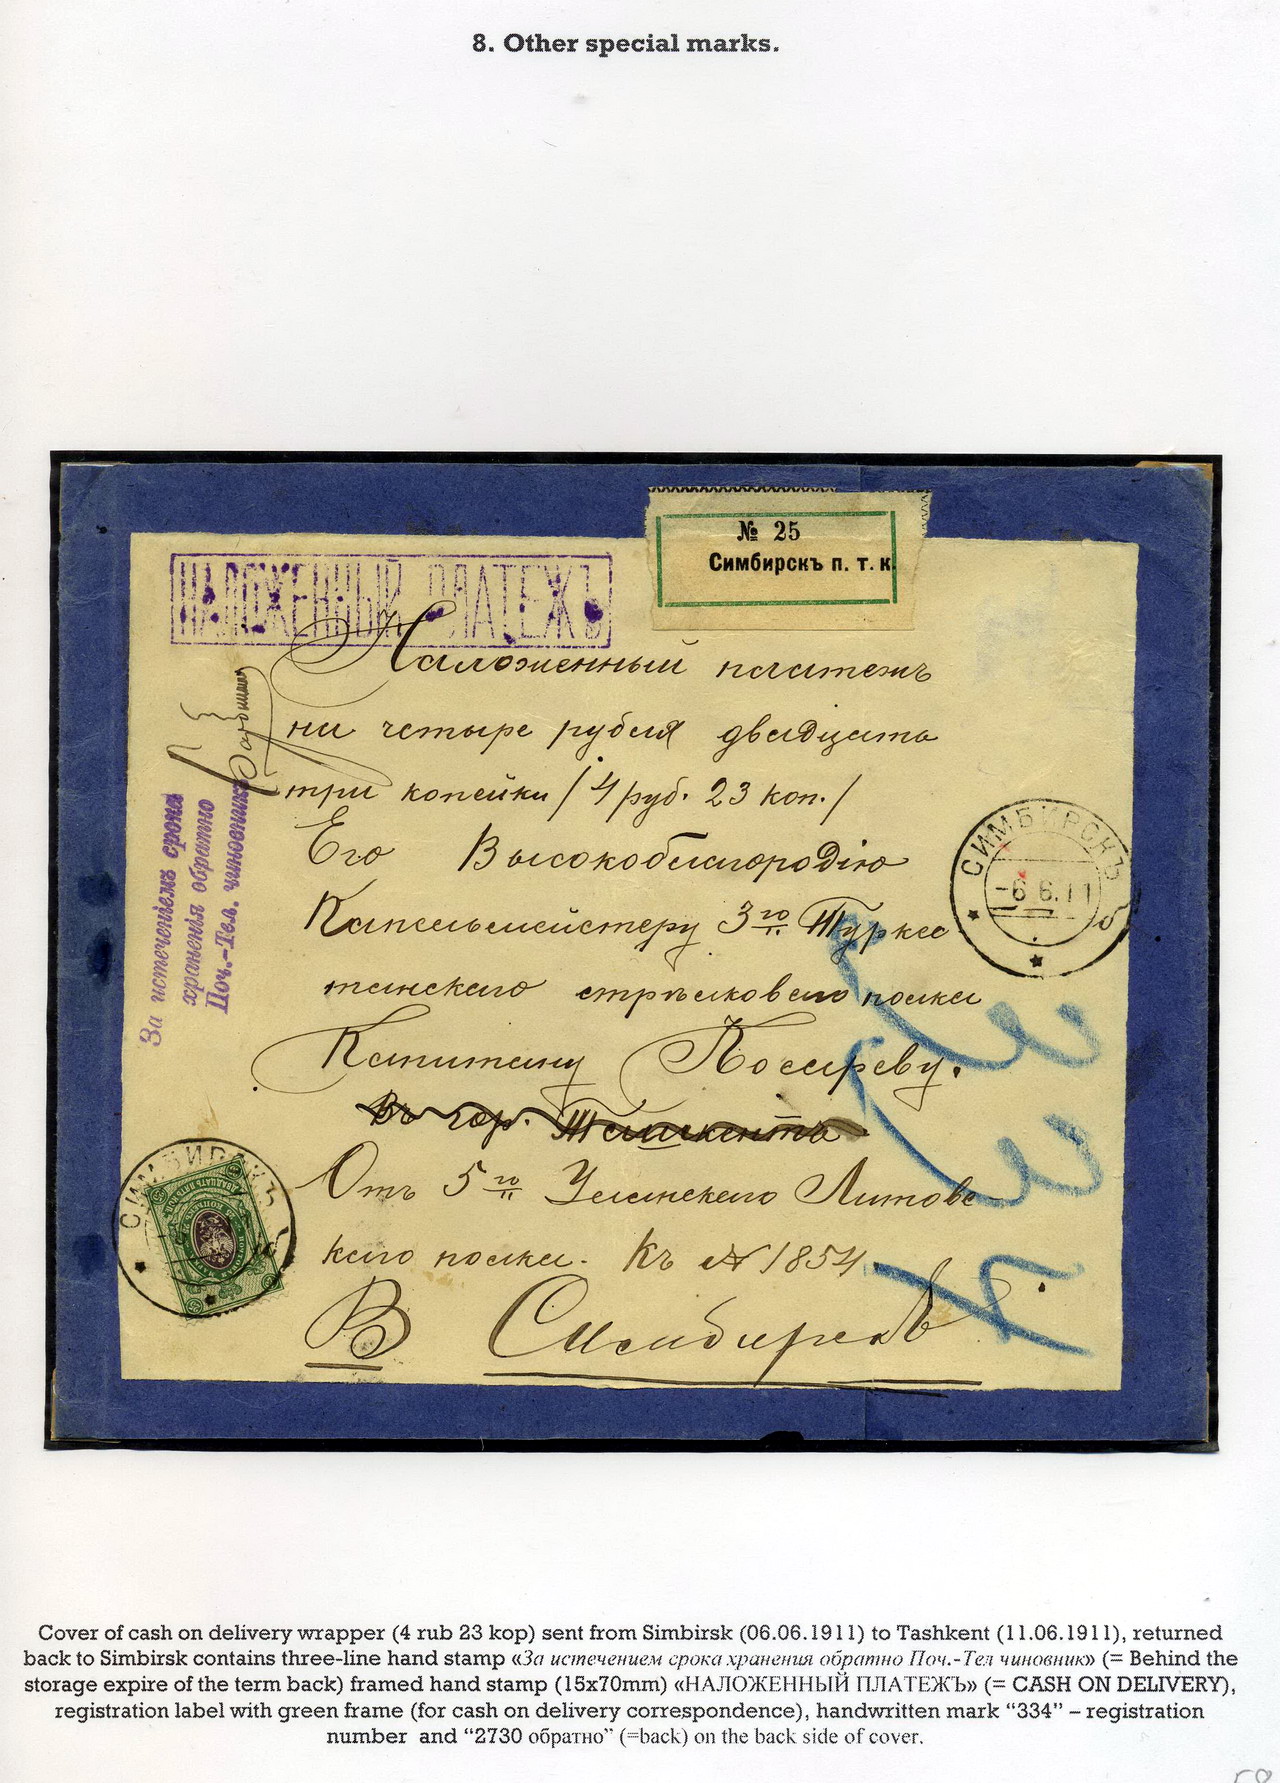 8. Other special marks.
№ 25
Симбирскъ п. т. к.
НАЛОЖЕННЫЙ ПЛАТЕЖЪ
Наложенный платежъ
на четыре рубля двадцать
три копейки / 4 руб. 23 коп. /
Его Высокоблагородію
Капельмейстеру 3го Турке
станскаго стрѣлковаго полка
Капитану
Въ гор. Ташкентъ
Отъ 5го Уланскаго Литовс-
каго полка. Къ № 1854.
В Симбирскъ
За истеченіемъ срока
храненія обратно
Поч.-Тел. чиновникъ
СИМБИРСКЪ
-6.6.11
СИМБИРСКЪ
Cover of cash on delivery wrapper (4 rub 23 kop) sent from Simbirsk (06.06.1911) to Tashkent (11.06.1911), returned
back to Simbirsk contains three-line hand stamp «За истечением срока хранения обратно Поч.-Тел чиновник» (= Behind the
storage expire of the term back) framed hand stamp (15x70mm) «НАЛОЖЕННЫЙ ПЛАТЕЖЪ» (= CASH ON DELIVERY),
registration label with green frame (for cash on delivery correspondence), handwritten mark “334” – registration
number and “2730 обратно” (=back) on the back side of cover.